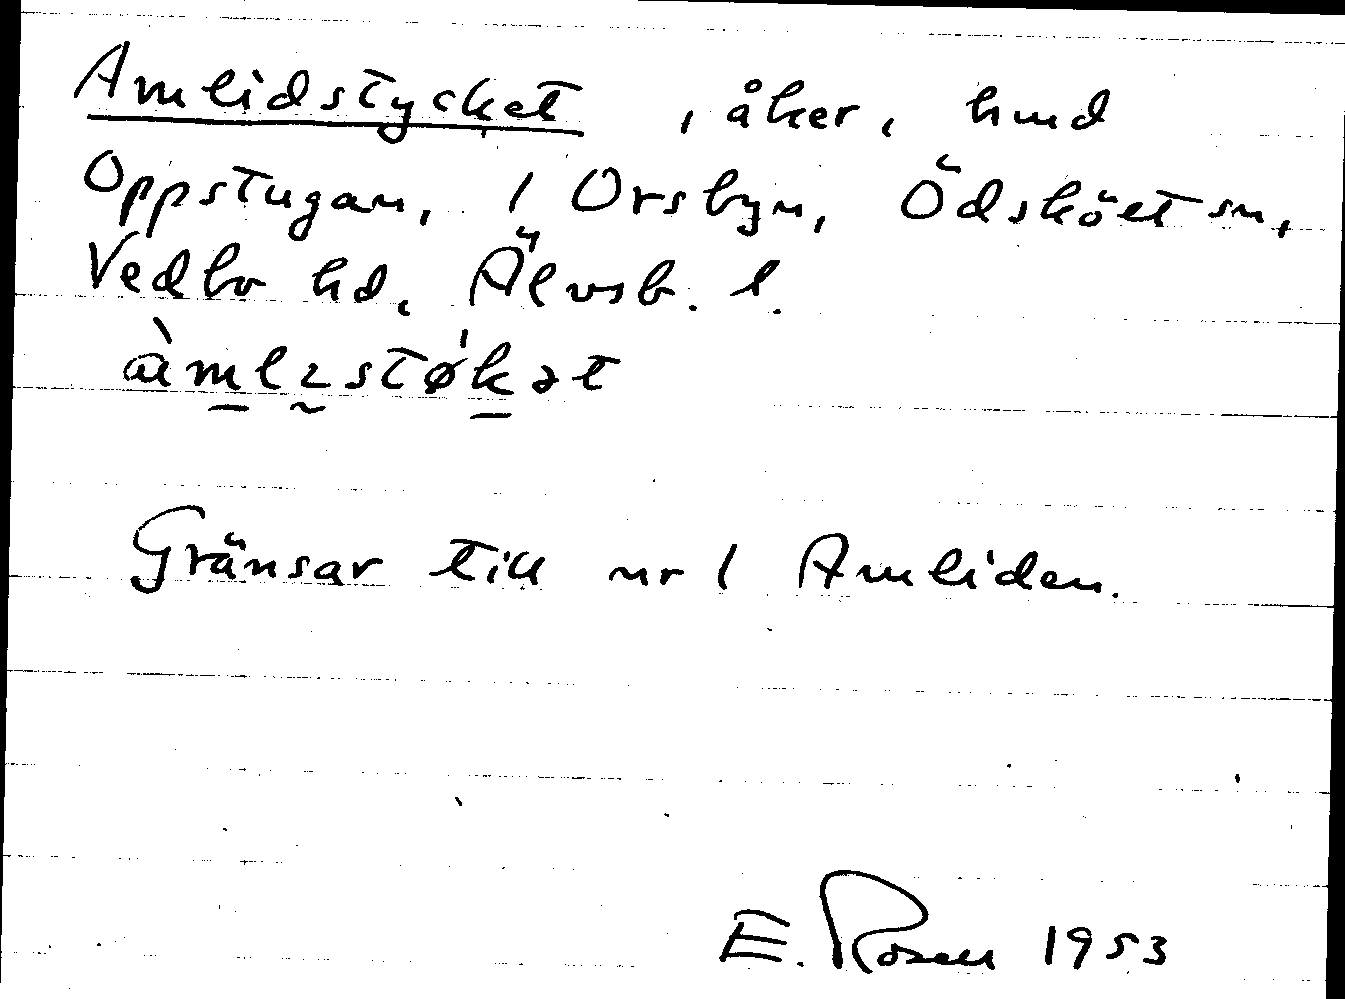 Amlidstycket, åker, hmd
Oppstugan, 1 Orsbyn, Ödsköet sn,
Vedbo hd, Älvsb. l.
àmlɩstøkət
Gränsar till nr 1 Amliden.
E. Rosen 1953